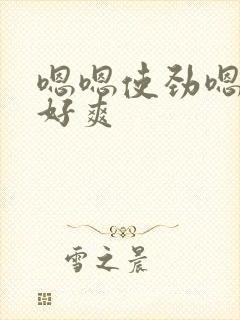 嗯嗯使劲嗯
好爽
雪之晨